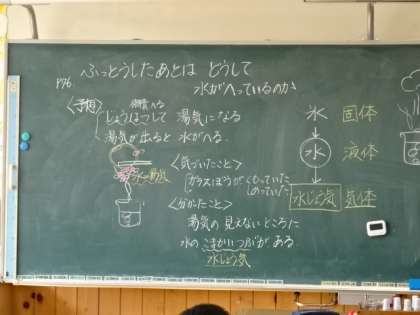 P76 ふっとうしたあとは どうして
水がへっているのか
<予想>
じょうはつして 湯気になる
湯気が出ると 水がへる
水 湯気
<気づいたこと>
ガラスぼうが くもっていた
<分かったこと>
湯気の 見えないところに
水の こまかいつぶが ある
水じょう気
氷 固体
水 液体
水じょう気 気体